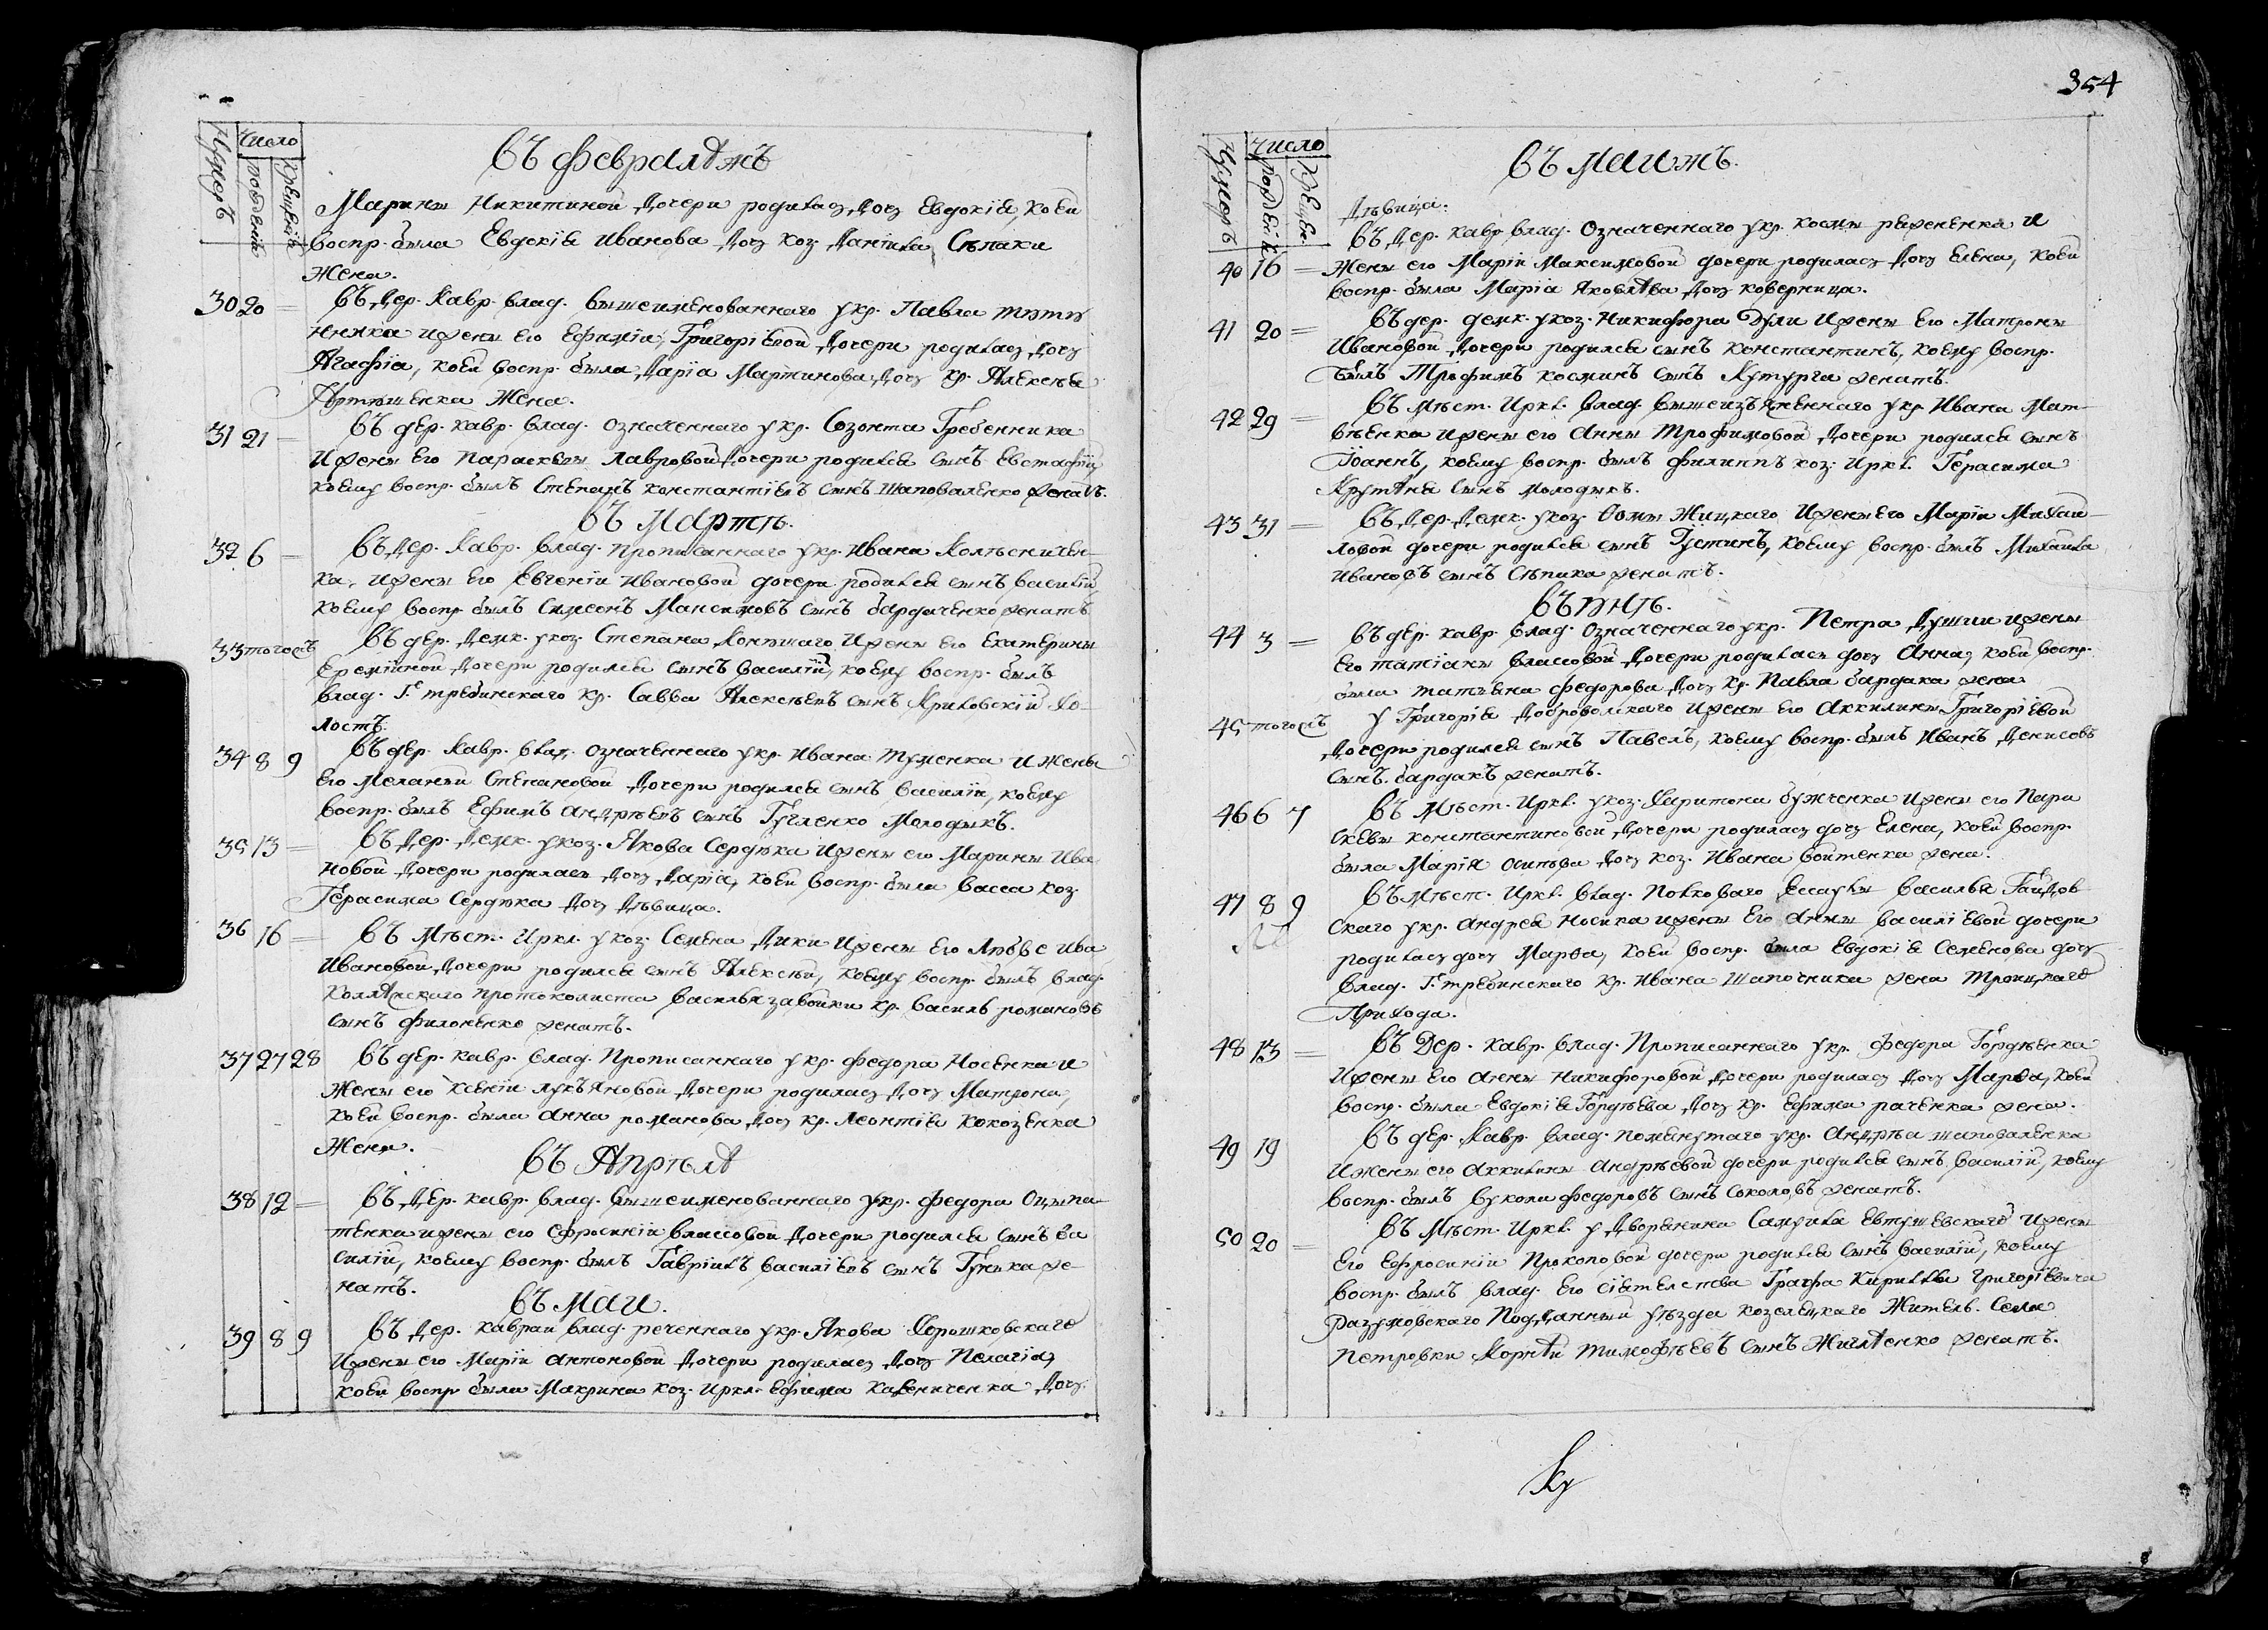 Нумеръ
Число
рождені
крещеніе
въ февралѣ жъ
Марины Никитиной дочери родилась дочь Евдокія, коей
воспр. была Евдокія Иванова дочь коз. Даніила Слѣпаки
жена.
30 20 = въ дер. кавр. влад. вышеименованнаго у кр. Павла
няка и жены его Ефиміи Григоріевой дочери родилась дочь
Агафіа, коей воспр. была Даріа Мартинова дочь кр. Алексѣя
Артюшенка жена.
31 21 = въ дер. кавр. влад. означеннаго у кр. Созонта Гребенника
и жены его параскевы лавровой дочери родился сынъ Евстафій
коему воспр. былъ Стефанъ константіевъ сынъ шаповаленко женатъ.
въ мартѣ.
32 6 = въ дер. кавр. влад. прописаннаго у кр. Ивана Колѣсничен-
ка, и жены его Евгеніи Ивановой дочери родился сынъ василій
коему воспр. былъ Симеонъ Максимовъ сынъ бардаченко женатъ
33 тогожъ въ дер. демк. у коз. Степана и жены его Екатерины
Ереміиной дочери родился сынъ василій, коему воспр. былъ
влад. Г: требинскаго кр. Савва Алексѣевъ сынъ Криховскій хо-
лостъ.
34 8 9 въ дер. кавр. влад. означеннаго у кр. Ивана Туменка и жены
его Меланьи Степановой дочери родился сынъ василій, коему
воспр. былъ Ефимъ андрѣевъ сынъ Гугленко молодыкъ.
35 13 = въ дер. демк. у коз. Якова Сердюка и жены его Марины Ива
новой дочери родилась дочь Даріа, коей воспр. была васса коз.
Герасима Сердюка дочь дѣвица.
36 16 = въ мѣст. Иркл. у коз. Семена Дики и жены его Любве Ива
Ивановой дочери родился сынъ Алексѣй, коему воспр. былъ влад.
коллѣжскаго протоколиста василья завойки кр. василь романовъ
сынъ филоненко женатъ.
37 27 28 въ дер. кавр. влад. прописаннаго у кр. федора Носенка и
жены его ксеніи лукъяновой дочери родилась дочь Матрона,
коей воспр. была анна романова дочь кр. леонтія кокозенка
жена.
въ Апрѣлѣ
38 12 = въ дер. кавр. влад. вышеименованнаго у кр. федора Оцыпа-
тенка и жены его Ефросиніи власовой дочери родился сынъ ва
силій, коему воспр. былъ Гавріилъ василіевъ сынъ Гунька же-
натъ.
въ маи.
39 8 9 въ дер. кавраи влад. реченнаго у кр. Якова Хорошковскаго
и жены его Маріи антоновой дочери родилась дочь Пелагіа,
коей воспр. была Макрина коз. Иркл. Ефима калениченка дочь
354
Нумеръ
число
рожден
крещен
въ маи жъ.
дѣвица.
въ дер. кавр. влад. означеннаго у кр. космы и
40 16 = жены его Маріи Максимовой дочери родилась дочь Елена, коей
воспр. была Маріа Яковлѣва дочь коверница.
41 20 = въ дер. демк. у коз. Никифора Дули и жены его Матроны
Ивановой дочери родился сынъ константинъ, коему воспр.
былъ Трофимъ косминъ сынъ Кутурга женатъ.
42 29 = въ мѣст. Иркл. влад. вышеизъясненнаго у кр. Ивана Мат-
вѣенка и жены его анны Трофимовой дочери родился сынъ
Іоаннъ, коему воспр. былъ филиппъ коз. Иркл. Герасима
сынъ молодыкъ.
43 31 = въ дер. демк. у коз. Ѳомы Жицкаго и жены его Маріи Михаи-
ловой дочери родился сынъ Густинъ, коему воспр. былъ Михаила
Ивановъ сынъ Слѣпика женатъ.
въ іюнѣ.
44 3 = въ дер. кавр. влад. означеннаго у кр. Петра Душки и жены
его татіаны власовой дочери родилась дочь Анна, коей воспр.
была татьяна федорова дочь кр. Павла бардака жена
45 тогожъ у Григорія Добровольскаго и жены его аккилины Григоріевой
дочери родился сынъ Павелъ, коему воспр. былъ Иванъ Денисовъ
сынъ бардакъ женатъ.
46 6 7 въ мѣст. Иркл. у коз. Харитона бужченка и жены его Пара
скевы константиновой дочери родилась дочь Елена, коей воспр.
была Маріа осипова дочь коз. Ивана войтенка жена.
47 8 9 въ мѣст. Иркл. влад. полковаго Ессаулы василья Гаидов
скаго у кр. андрея Носика и жены его анны василіевой дочери
родилась дочь Марѳа, коей воспр. была Евдокія Семенова дочь
влад. Г. требинскаго кр. Ивана шапочника жена троицкаго
прихода.
48 13 = въ дер. кавр. влад. прописаннаго у кр. федора Гордѣенка
и жены его анны Никифоровой дочери родилась дочь Марѳа, коей
воспр. была Евдокія Гордѣева дочь кр. Ефима раченка жена.
49 19 въ дер. кавр. влад. помянутаго у кр. андрѣа шаповаленка
и жены его аккилины андрѣевой дочери родился сынъ василій, коему
воспр. былъ вукола федоровъ сынъ соколовъ женатъ.
50 20 = въ мѣст. Иркл. у дворянина Самуила Евтушевскаго и жены
его Ефросиніи Прокоповой дочери родился сынъ василій, коему
воспр. былъ влад. его сіятелства Графа кириллы григоріевича
Разумовскаго подданный уѣзда козелецкаго житель. села
петровки Корнѣй тимофѣевъ сынъ женатъ.